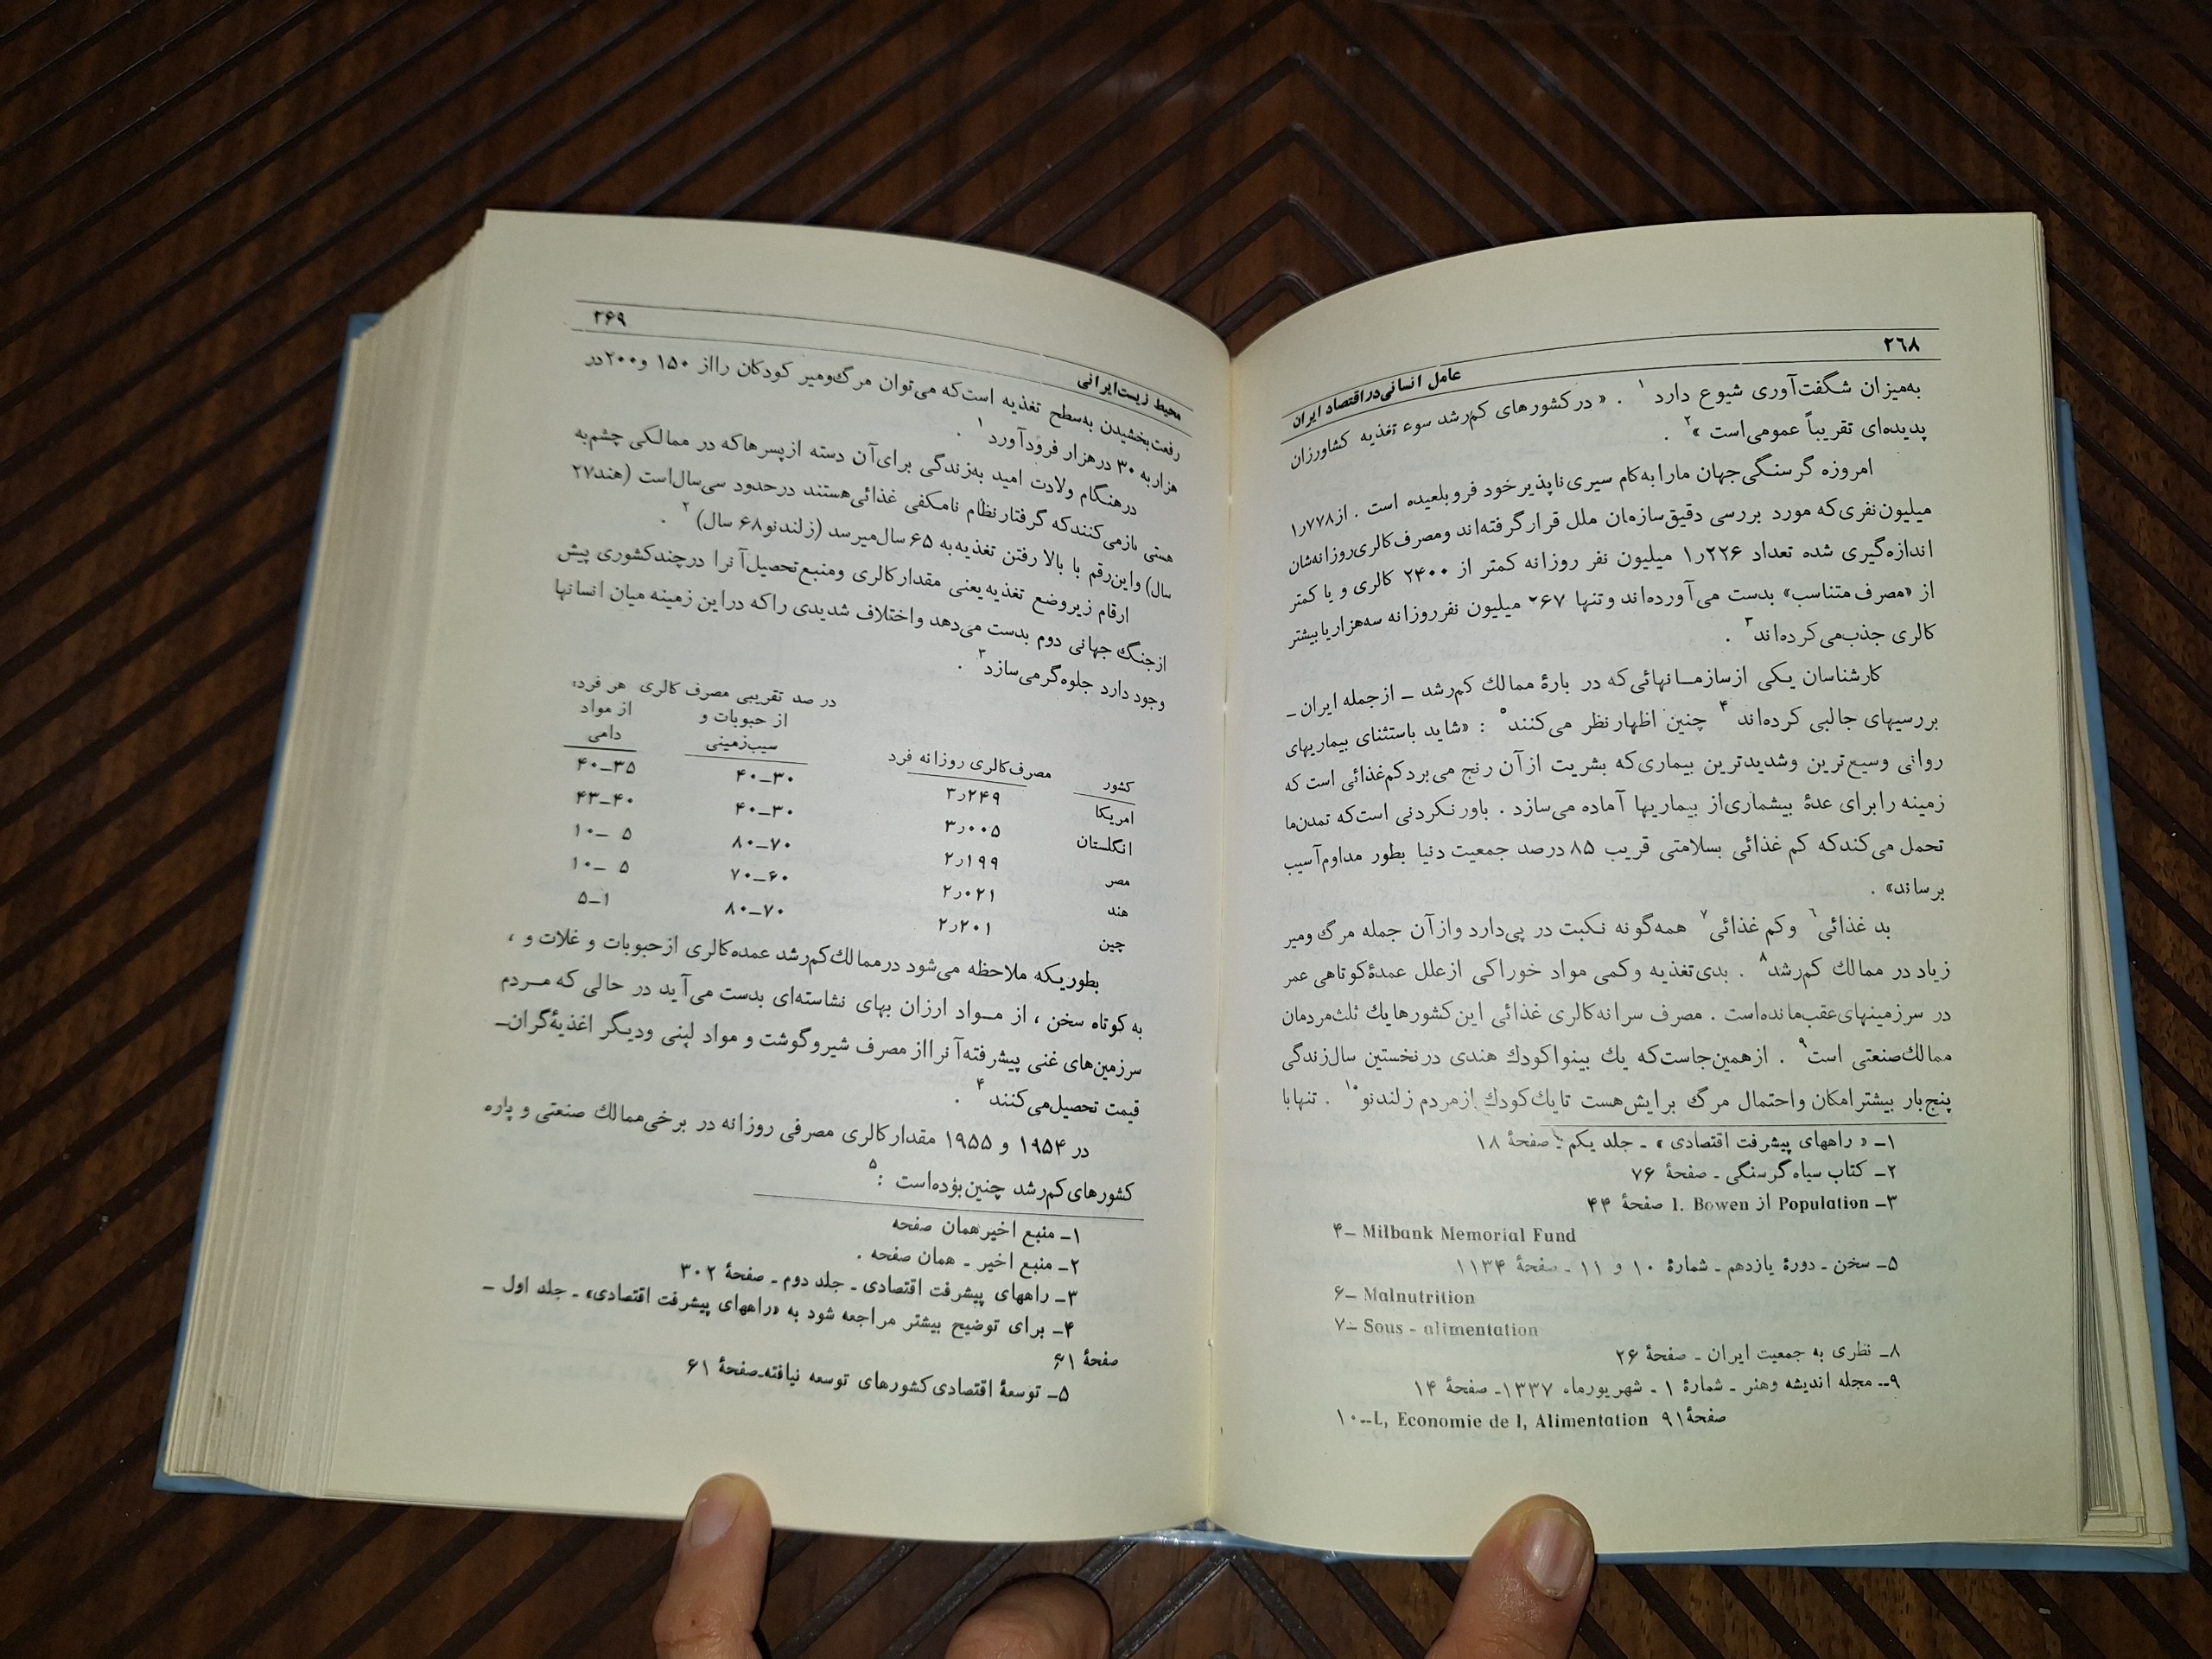 ۲۶۸
عامل انسانی در اقتصاد ایران
به‌میزان شگفت‌آوری شیوع دارد۱ . « در کشورهای کم‌رشد سوء تغذیه کشاورزان
پدیده‌ای تقریباً عمومی‌است »۲ .
امروزه گرسنگی‌جهان ما را به‌کام سیری‌ناپذیر خود فرو بلعیده است . از ۱٫۷۷۸
میلیون‌نفری‌که مورد بررسی دقیق‌سازمان ملل قرار گرفته‌اند و مصرف کالری‌روزانه‌شان
اندازه‌گیری شده تعداد ۱٫۲۲۶ میلیون نفر روزانه کمتر از ۲۴۰۰ کالری و یا کمتر
از «مصرف متناسب» بدست می‌آورده‌اند و تنها ۲۶۷ میلیون نفر روزانه سه‌هزار یا بیشتر
کالری جذب‌می‌کرده‌اند۳ .
کارشناسان یکی از سازمـانهائی‌که در بارهٔ ممالك کم‌رشد ـ از جمله ایران ـ
بررسیهای جالبی کرده‌اند۴ چنین اظهار نظر می‌کنند۵ : «شاید باستثنای بیماریهای
روانی وسیع‌ترین وشدیدترین بیماری‌که بشریت از آن رنج می‌برد کم‌غذائی است که
زمینه را برای عدهٔ بیشماری‌از بیماریها آماده می‌سازد . باور نکردنی است‌که تمدن‌ما
تحمل می‌کند که کم غذائی بسلامتی قریب ۸۵ درصد جمعیت دنیا بطور مداوم آسیب
برساند» .
بد غذائی۶ وکم غذائی۷ همه‌گونه نکبت در پی‌دارد و از آن جمله مرگ ومیر
زیاد در ممالك کم‌رشد۸ . بدی‌تغذیه وکمی مواد خوراکی از علل عمدهٔ کوتاهی عمر
در سرزمینهای‌عقب‌مانده‌است . مصرف سرانه‌کالری غذائی این‌کشورها یك ثلث‌مردمان
ممالك‌صنعتی است۹ . از همین‌جاست‌که یك بینوا کودك هندی در نخستین سال‌زندگی
پنج‌بار بیشتر امکان واحتمال مرگ برایش‌هست تا یك‌کودك از مردم زلندنو۱۰ . تنها با
۱ـ « راههای پیشرفت اقتصادی » ـ جلد یکم ـ صفحهٔ ۱۸
۲ـ کتاب سیاه گرسنگی ـ صفحهٔ ۷۶
۳ـ Population از I. Bowen صفحهٔ ۴۴
۴ـ Milbank Memorial Fund
۵ـ سخن ـ دورهٔ یازدهم ـ شمارهٔ ۱۰ و ۱۱ ـ صفحهٔ ۱۱۳۴
۶ـ Malnutrition
۷ـ Sous - alimentation
۸ـ نظری به جمعیت ایران ـ صفحهٔ ۲۶
۹ـ مجله اندیشه وهنر ـ شمارهٔ ۱ ـ شهریورماه ۱۳۳۷ـ صفحهٔ ۱۴
۱۰ـ L, Economie de l, Alimentation صفحهٔ ۹۱
۲۶۹
محیط زیست‌ایرانی
رفعت‌بخشیدن به‌سطح تغذیه است‌که می‌توان مرگ‌ومیر کودکان را از ۱۵۰ و ۲۰۰ در
هزار به ۳۰ در هزار فرود آورد۱ .
در هنگام ولادت امید به‌زندگی برای‌آن دسته از پسرها که در ممالکی چشم‌به
هستی باز می‌کنند که گرفتار نظام نامکفی غذائی‌هستند در حدود سی‌سال‌است (هند ۲۷
سال) و این‌رقم با بالا رفتن تغذیه‌به ۶۵ سال‌میرسد (زلندنو ۶۸ سال)۲ .
ارقام زیر وضع تغذیه یعنی مقدار کالری ومنبع‌تحصیل‌آنرا در چند کشوری پیش
از جنگ جهانی دوم بدست می‌دهد و اختلاف شدیدی را که در این زمینه میان انسانها
وجود دارد جلوه‌گر می‌سازد۳ .
در صد تقریبی مصرف کالری هر فرد:
کشور مصرف‌کالری روزانه فرد از حبوبات و سیب‌زمینی از مواد دامی
امریکا ۳٫۲۴۹ ۳۰ـ۴۰ ۳۵ـ۴۰
انگلستان ۳٫۰۰۵ ۳۰ـ۴۰ ۴۰ـ۴۳
مصر ۲٫۱۹۹ ۷۰ـ۸۰ ۵ ـ۱۰
هند ۲٫۰۲۱ ۶۰ـ۷۰ ۵ ـ۱۰
چین ۲٫۲۰۱ ۷۰ـ۸۰ ۱ـ۵
بطوریکه ملاحظه می‌شود در ممالك‌کم‌رشد عمده‌کالری از حبوبات و غلات و ،
به کوتاه سخن ، از مـواد ارزان بهای نشاسته‌ای بدست می‌آید در حالی که مـردم
سرزمین‌های غنی پیشرفته‌آنرا از مصرف شیر وگوشت و مواد لبنی ودیگر اغذیهٔ گران‌ـ
قیمت تحصیل‌می‌کنند۴ .
در ۱۹۵۴ و ۱۹۵۵ مقدار کالری مصرفی روزانه در برخی‌ممالك صنعتی و پاره
کشورهای کم‌رشد چنین‌بوده‌است :۵
۱ـ منبع اخیر همان صفحه
۲ـ منبع اخیر ـ همان صفحه .
۳ـ راههای پیشرفت اقتصادی ـ جلد دوم ـ صفحهٔ ۳۰۲
۴ـ برای توضیح بیشتر مراجعه شود به «راههای پیشرفت اقتصادی» ـ جلد اول ـ
صفحهٔ ۶۱
۵ـ توسعهٔ اقتصادی کشورهای توسعه نیافته‌ـ صفحهٔ ۶۱